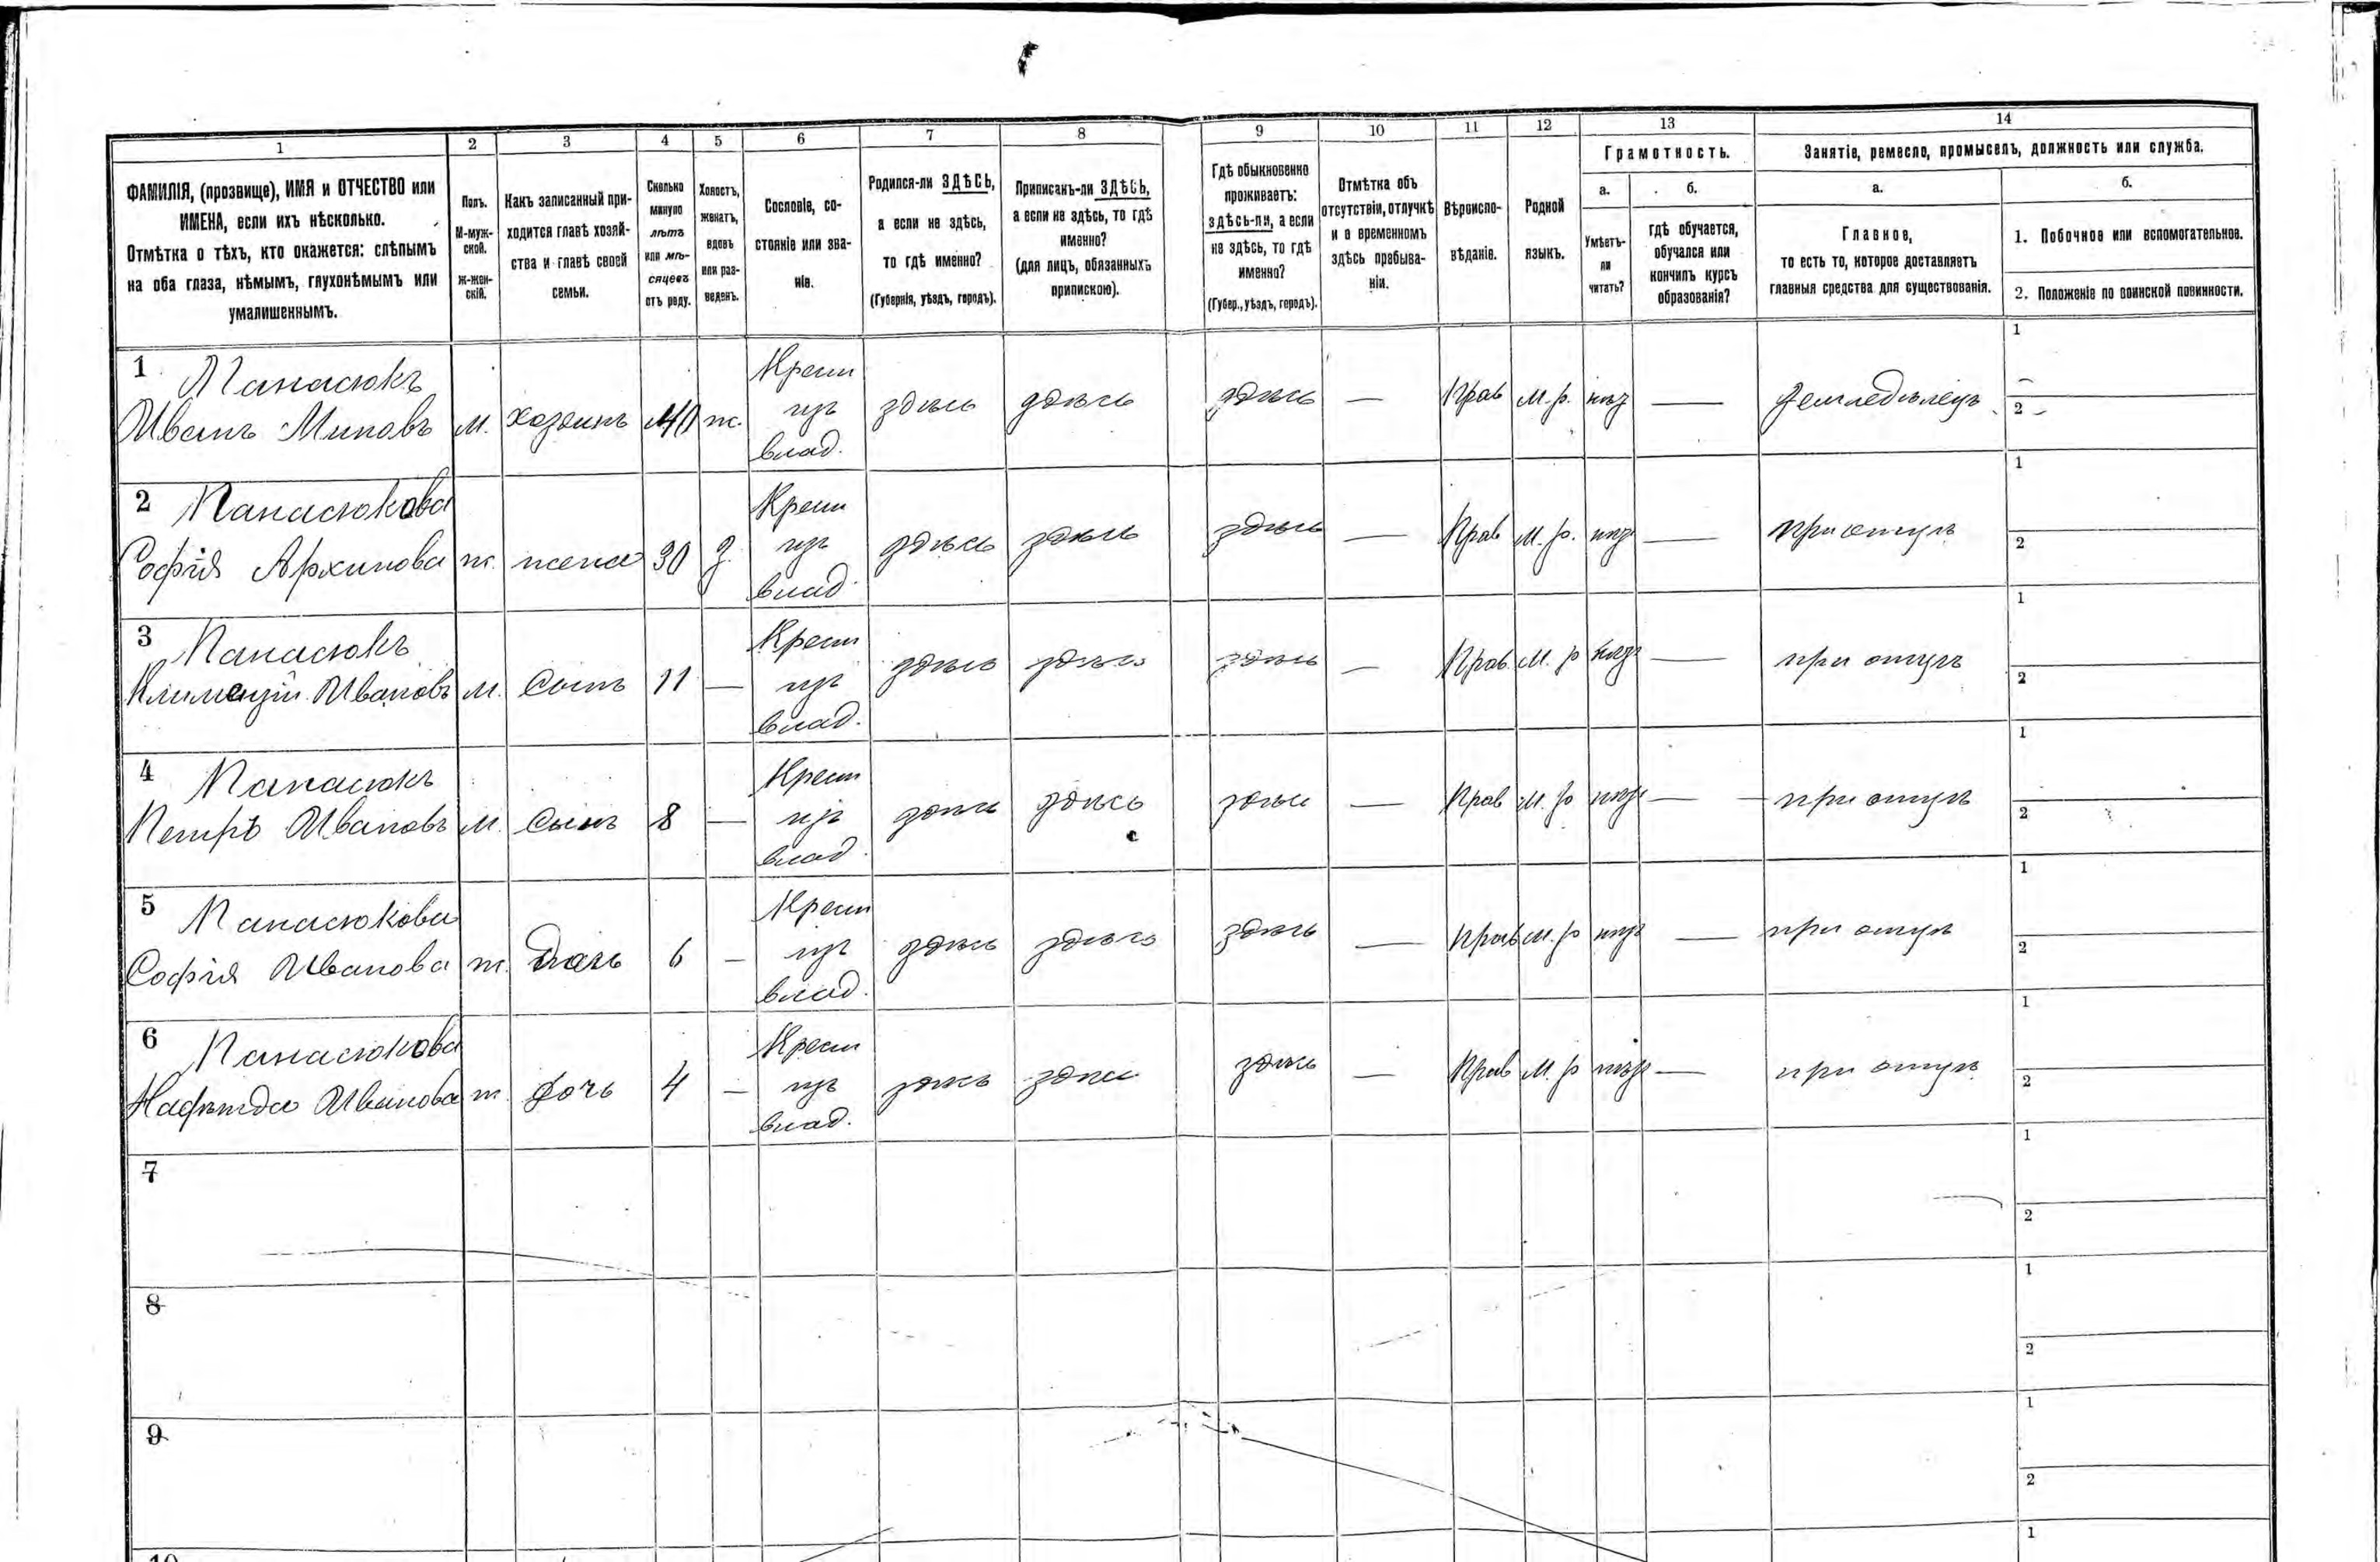 1
2
3
4
5
6
7
8
9
10
11
12
13
14
ФАМИЛІЯ, (прозвище), ИМЯ и ОТЧЕСТВО или
ИМЕНА, если ихъ нѣсколько.
Отмѣтка о тѣхъ, кто окажется: слѣпымъ
на оба глаза, нѣмымъ, глухонѣмымъ или
умалишеннымъ.
Полъ.
М-муж-
ской.
Ж-жен-
скій.
Какъ записанный при-
ходится главѣ хозяй-
ства и главѣ своей
семьи.
Сколько
минуло
лѣтъ
или мѣ-
сяцевъ
отъ роду.
Холостъ,
женатъ,
вдовъ
или раз-
веденъ.
Сословіе, со-
стояніе или зва-
ніе.
Родился-ли ЗДѢСЬ,
а если не здѣсь,
то гдѣ именно?
(Губернія, уѣздъ, городъ).
Приписанъ-ли ЗДѢСЬ,
а если не здѣсь, то гдѣ
именно?
(для лицъ, обязанныхъ
припискою).
Гдѣ обыкновенно
проживаетъ:
здѣсь-ли, а если
не здѣсь, то гдѣ
именно?
(Губер., уѣздъ, городъ).
Отмѣтка объ
отсутствіи, отлучкѣ
и о временномъ
здѣсь пребыва-
ніи.
Вѣроиспо-
вѣданіе.
Родной
языкъ.
Грамотность.
а.
Умѣетъ-
ли
читать?
б.
гдѣ обучается,
обучался или
кончилъ курсъ
образованія?
Занятіе, ремесло, промыселъ, должность или служба.
а.
Главное,
то есть то, которое доставляетъ
главныя средства для существованія.
б.
1. Побочное или вспомогательное.
2. Положеніе по воинской повинности.
1 Панасюкъ
Иванъ Миновъ м. хозяинъ 40 ж. Крест изъ влад. здѣсь здѣсь здѣсь — Прав м.р. нѣт — земледѣлецъ
1
2
2 Панасюкова
Софія Архипова ж. жена 30 з. Крест изъ влад. здѣсь здѣсь здѣсь — Прав м.р. нѣт — при отцѣ
1
2
3 Панасюкъ
Климентій Ивановъ м. Сынъ 11 — Крест изъ влад. здѣсь здѣсь здѣсь — Прав. м.р нѣт — при отцѣ
1
2
4 Панасюкъ
Петръ Ивановъ м. Сынъ 8 — Крест изъ влад. здѣсь здѣсь здѣсь — Прав м.р нѣт — при отцѣ
1
2
5 Панасюкова
Софія Иванова ж. Дочь 6 — Крест изъ влад. здѣсь здѣсь здѣсь — Прав м.р нѣт — при отцѣ
1
2
6 Панасюкова
Иванова ж. дочь 4 — Крест изъ влад. здѣсь здѣсь здѣсь — Прав м.р нѣт — при отцѣ
1
2
7
1
2
8
1
2
9
1
2
1